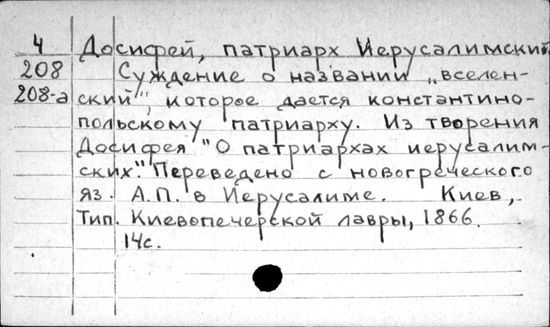 4 Досифей, патриарх Иерусалимский
208 Суждение о названии „вселен-
208-а ский", которое дается константино-
польскому патриарху. Из творения
Досифея "О патриархах иерусалим-
ских". Переведено с новогреческого
яз. А.П. в Иерусалиме. Киев,
Тип. Киевопечерской лавры, 1866.
14с.